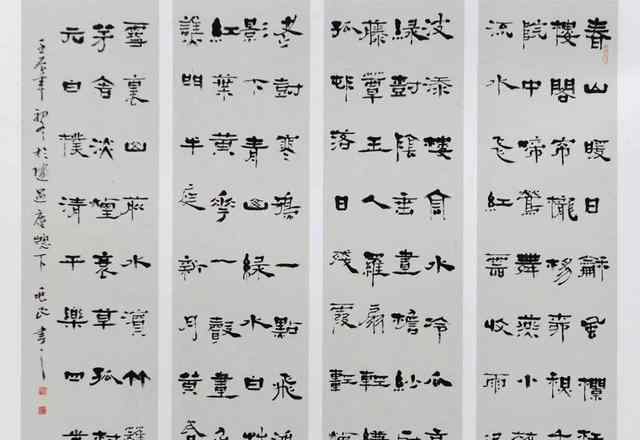 春山暖日龢風欄
樓閣帘櫳楊茆秋千
院中啼鶯舞燕小
流水飛紅雲收雨
波添樓高水冷瓜
綠樹陰垂晝檐紗
藤簟玉人羅扇輕
孤邨落日殘霞輕
老樹寒鴉一點飛
影下青山綠水白
紅葉黃花一聲畫
譙門半庭新月黃
雪裏山前水濱竹籬
茅舍淡煙衰草孤村
元白樸清平樂四
壬辰年初冬於 庵窗下 書